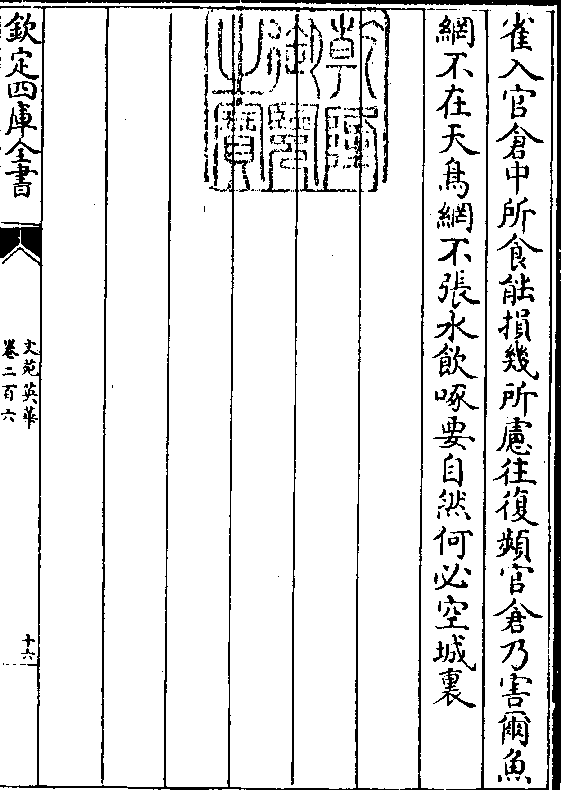 雀入官倉中所食能損幾所慮往復頻官倉乃害爾魚
網不在天鳥網不張水飲啄要自然何必空城裏
乾隆御覽之寶
欽定四庫全書
文苑英華
卷二百六
十六